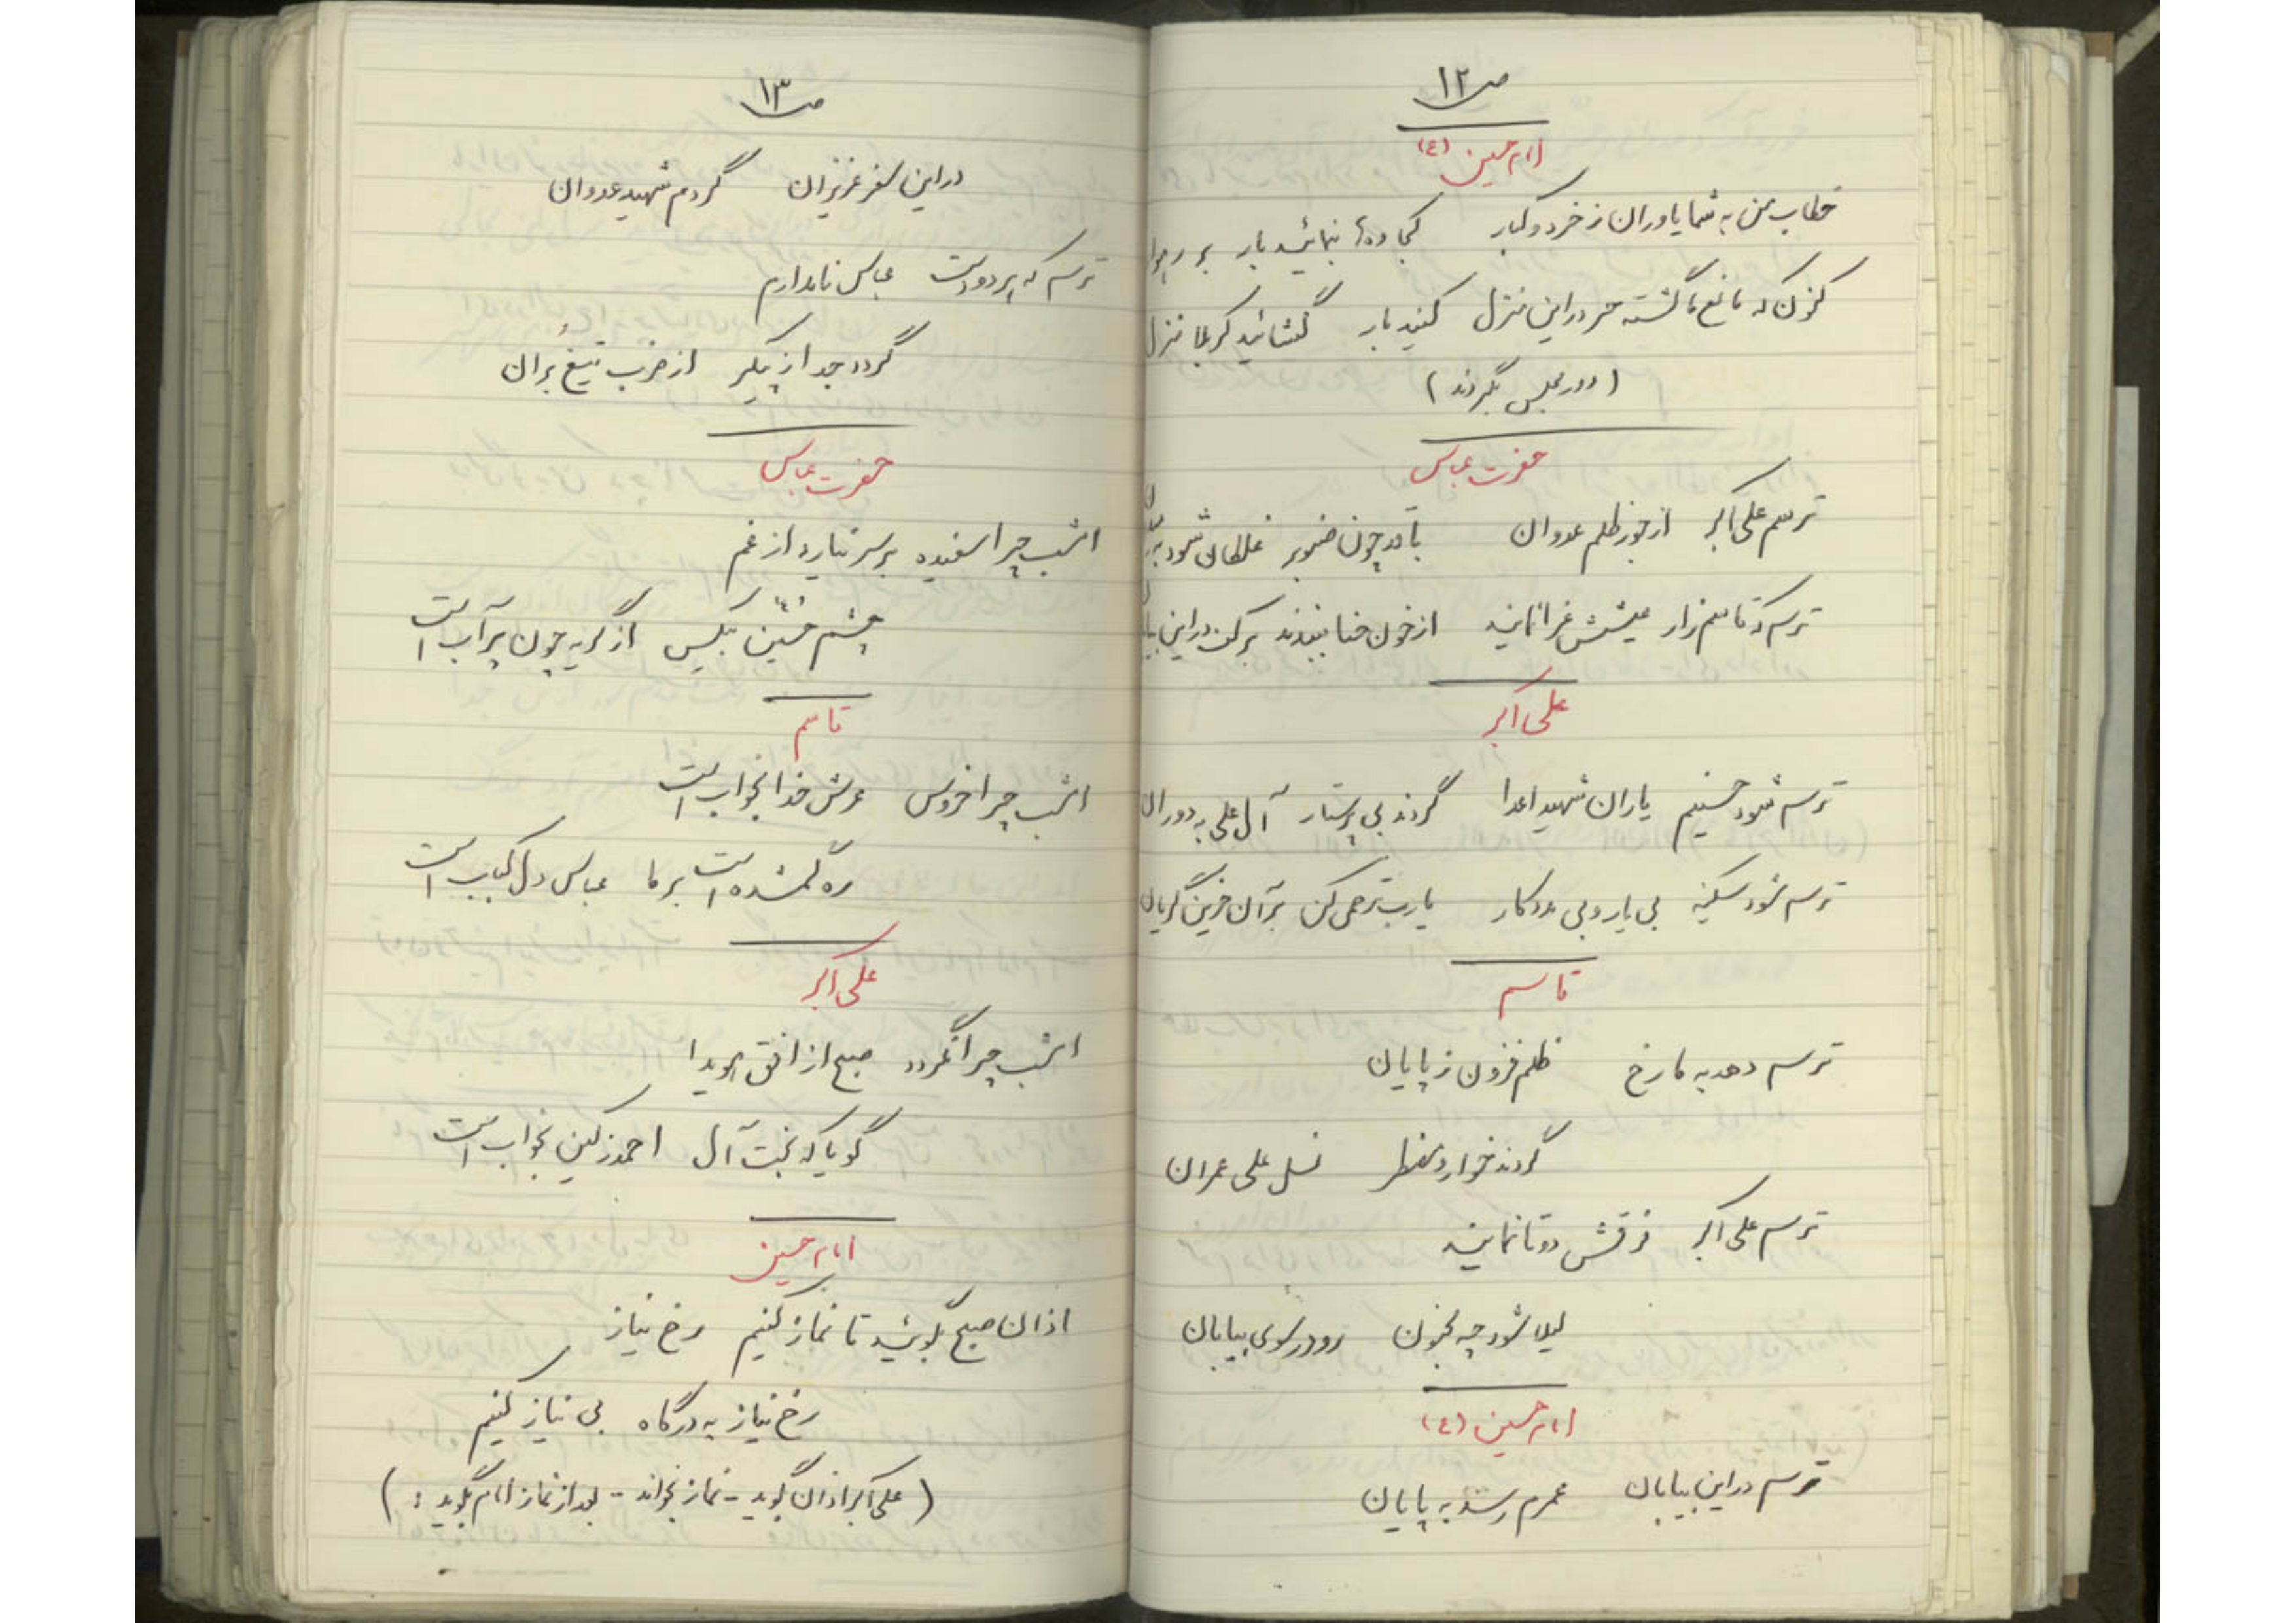 ص۱۲
امام حسین (ع)
خطاب من به شما یاوران ز خرد و کبار کجاوه‌ها بنمائید بار بر
کنون که مانع ما گشته حر در این منزل کنید بار گشائید کربلا منزل
(دور مجلس بگردند)
حضرت عباس
ترسم علی اکبر از جور ظلم عدوان با قد چون صنوبر غلطان شود به
ترسم که قاسم زار عیشش عزا نمایند از خون حنا ببندند بر کف در این
علی اکبر
ترسم شود حسینم یاران شهید اعدا گردند بی پرستار آل علی به دوران
ترسم شود سکینه بی یار و بی مددکار یا رب ترحمی کن بر آن حزین گریان
قاسم
ترسم دهد به ما رخ ظلم فزون ز پایان
گردند خوار و مضطر نسل علی عمران
ترسم علی اکبر فرقش دو تا نمایند
لیلا شود چه مجنون رو در سوی بیابان
امام حسین (ع)
ترسم در این بیابان عمرم رسد به پایان
ص۱۳
در این سفر عزیزان گردم شهید عدوان
ترسم که پر دو دست عباس نامدارم
گردد جدا ز پیکر از ضرب تیغ بُران
حضرت عباس
امشب چرا سفیده بر سر نیارد از غم
چشم حسین بیکس از گریه چون پر آب است
قاسم
امشب چرا خروس عرش خدا بخواب است
ره گمشده است بر ما عباس دل کباب است
علی اکبر
امشب چرا نگردد صبح از افق هویدا
گویا که بخت آل احمد ز کین بخواب است
امام حسین
اذان صبح بگوئید تا نماز کنیم رخ نیاز
رخ نیاز به درگاه بی نیاز کنیم
(علی اکبر اذان گوید - نماز بخواند - بعد از نماز امام بگوید :)